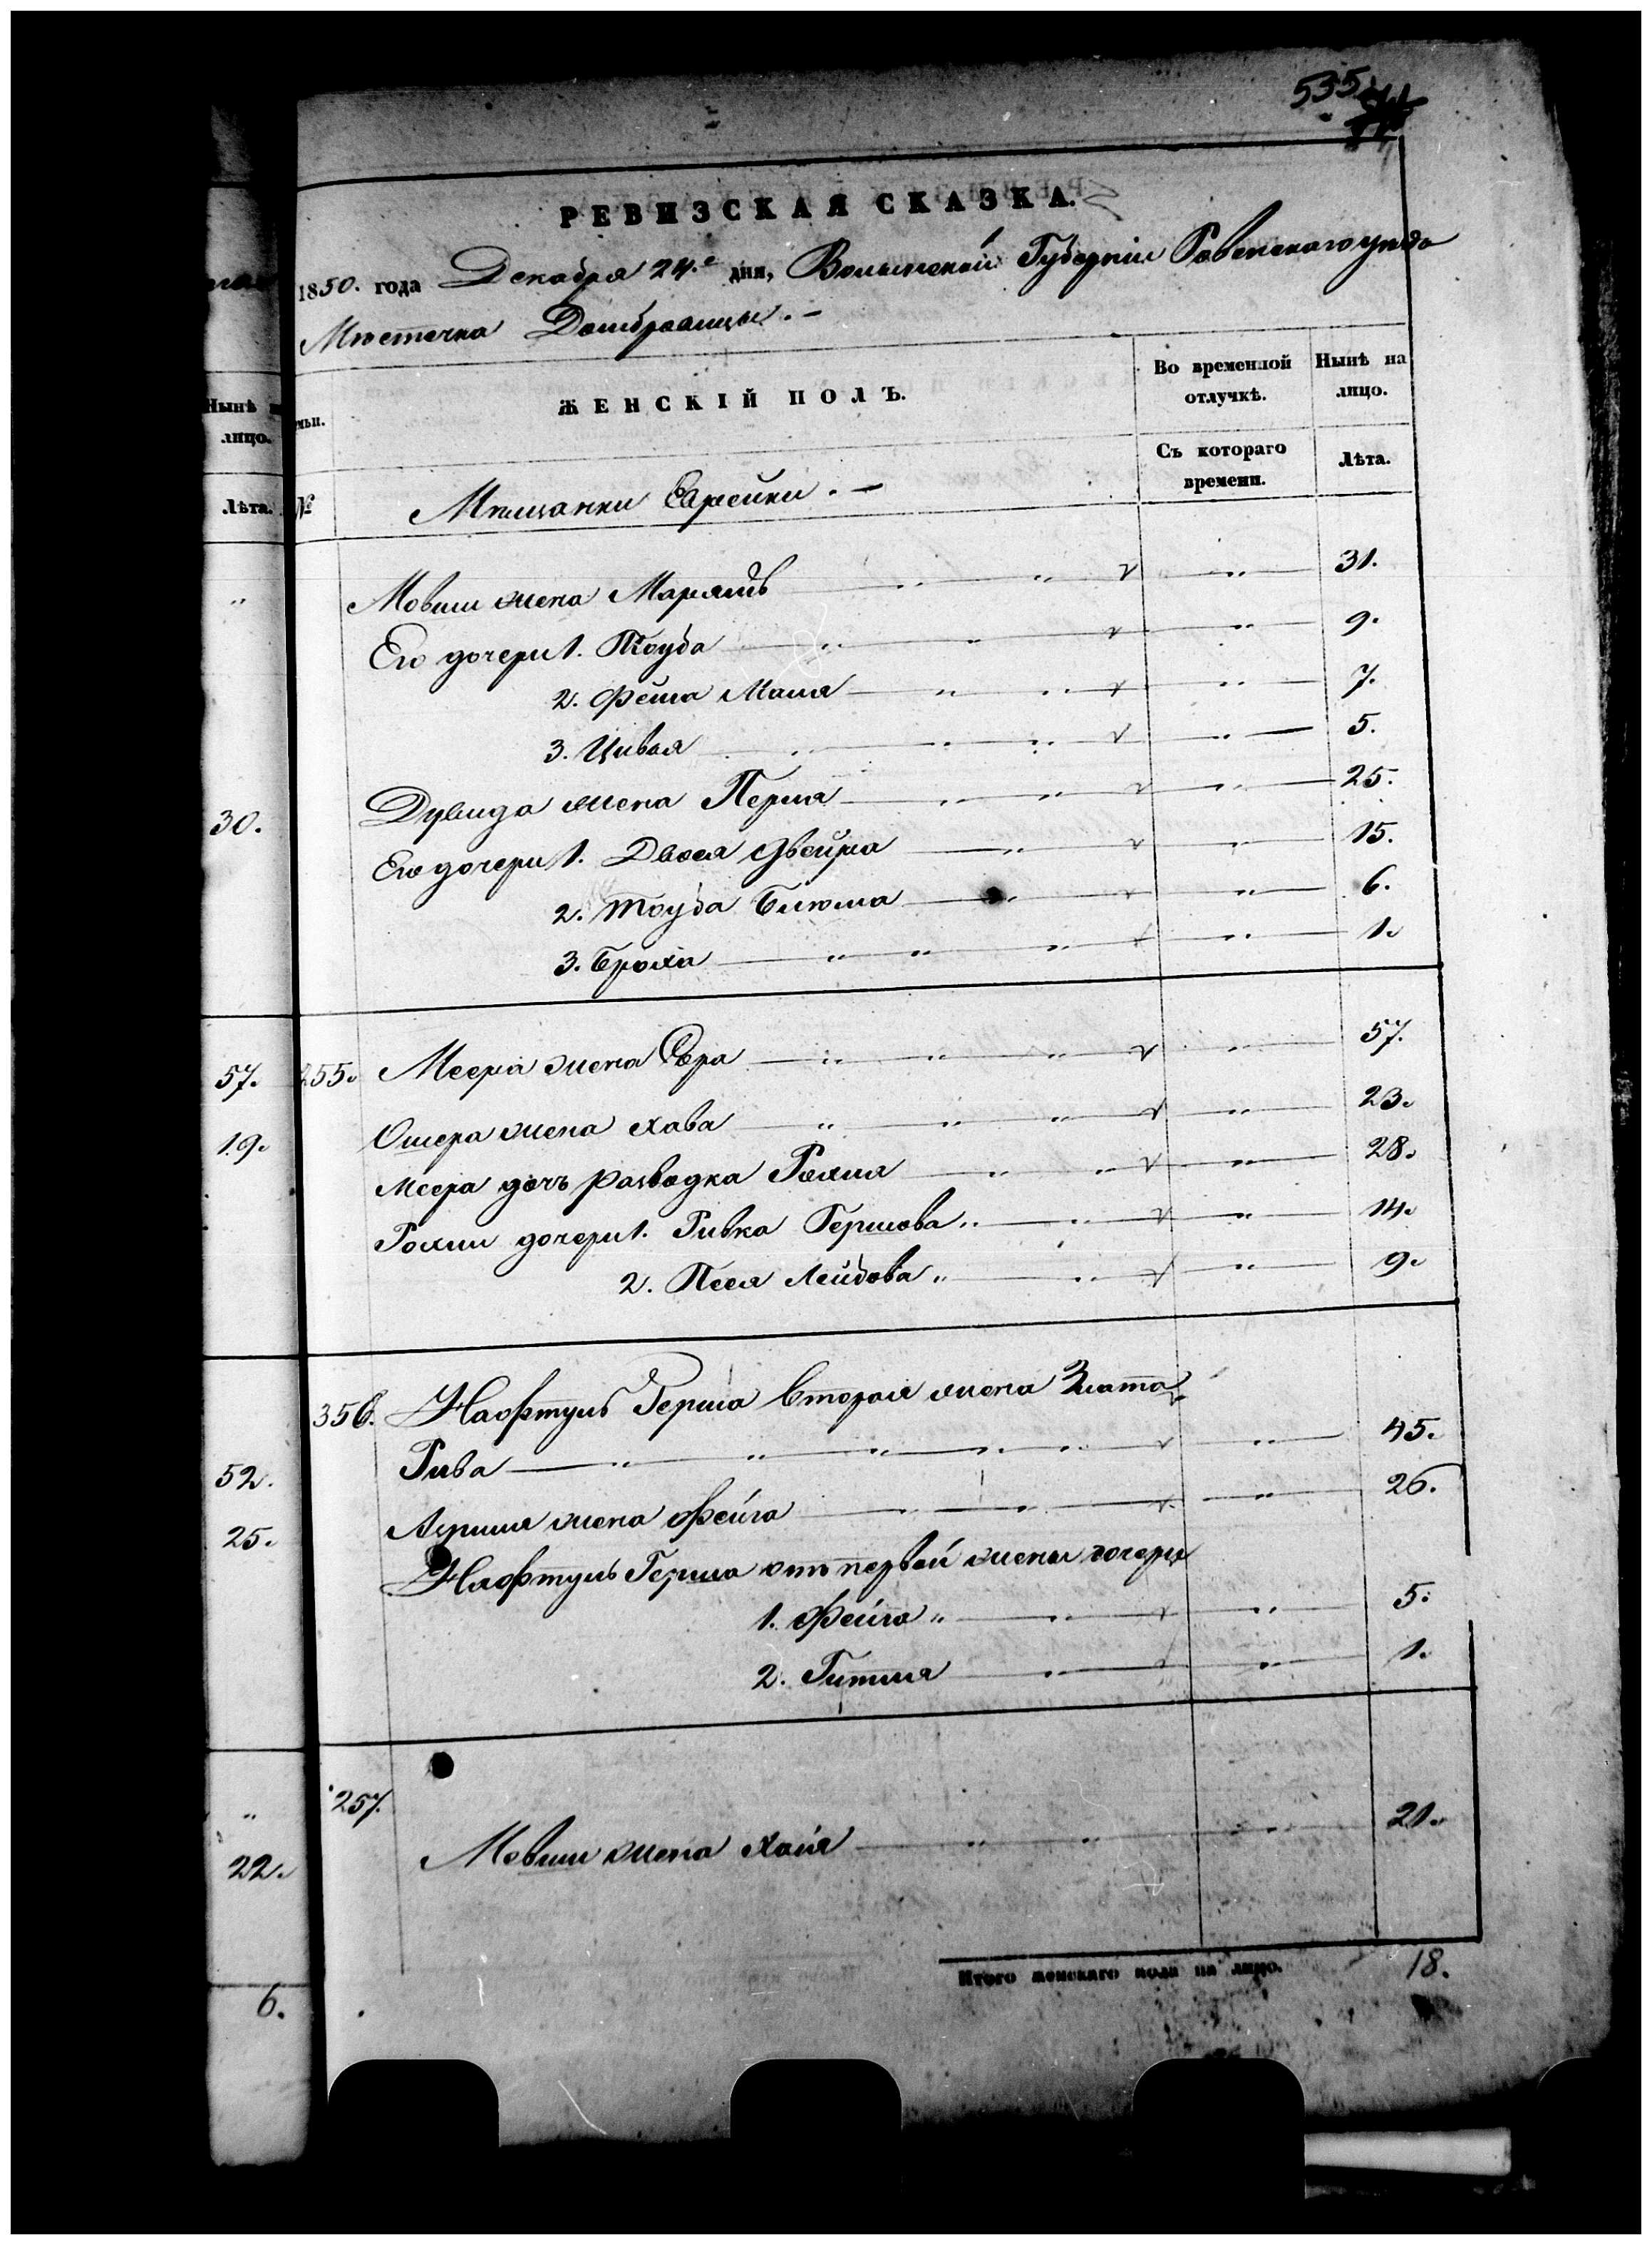 535
РЕВИЗСКАЯ СКАЗКА.
1850. года Декабря 24.е дня, Волынской Губернии Ровенского уезда
Мѣстечка Домбровицы.
Нынѣ
лицо.
Лѣта.
№
ЖЕНСКІЙ ПОЛЪ.
Во временной отлучкѣ.
Нынѣ на лицо.
Съ котораго времени.
Лѣта.
Мѣщанки Еврейки.
Мовши жена Марямъ 31.
Его дочери 1. Тоуба 9.
2. Фейга Маля 7.
3. Цивья 5.
30. Дувида жена Перля 25.
Его дочери 1. Двося Двейра 15.
2. Тоуба Блюма 6.
3. Броха 1.
57. 255. Меера жена Сора 57.
19. Ошера жена Хава 23.
Меера дочь разводка Рохля 28.
Рохли дочери 1. Ривка Гершова 14.
2. Песя Лейбова 9.
356. Нафтуль Герша вторая жена Злата
52. Рива 45.
25. жена Фейга 26.
Нафтуль Герша отъ первой жены дочери
1. Фейга 5.
2. Гитля 1.
257.
22. Мовши жена Хая 21.
Итого женскаго пола на лицо. 18.
6.